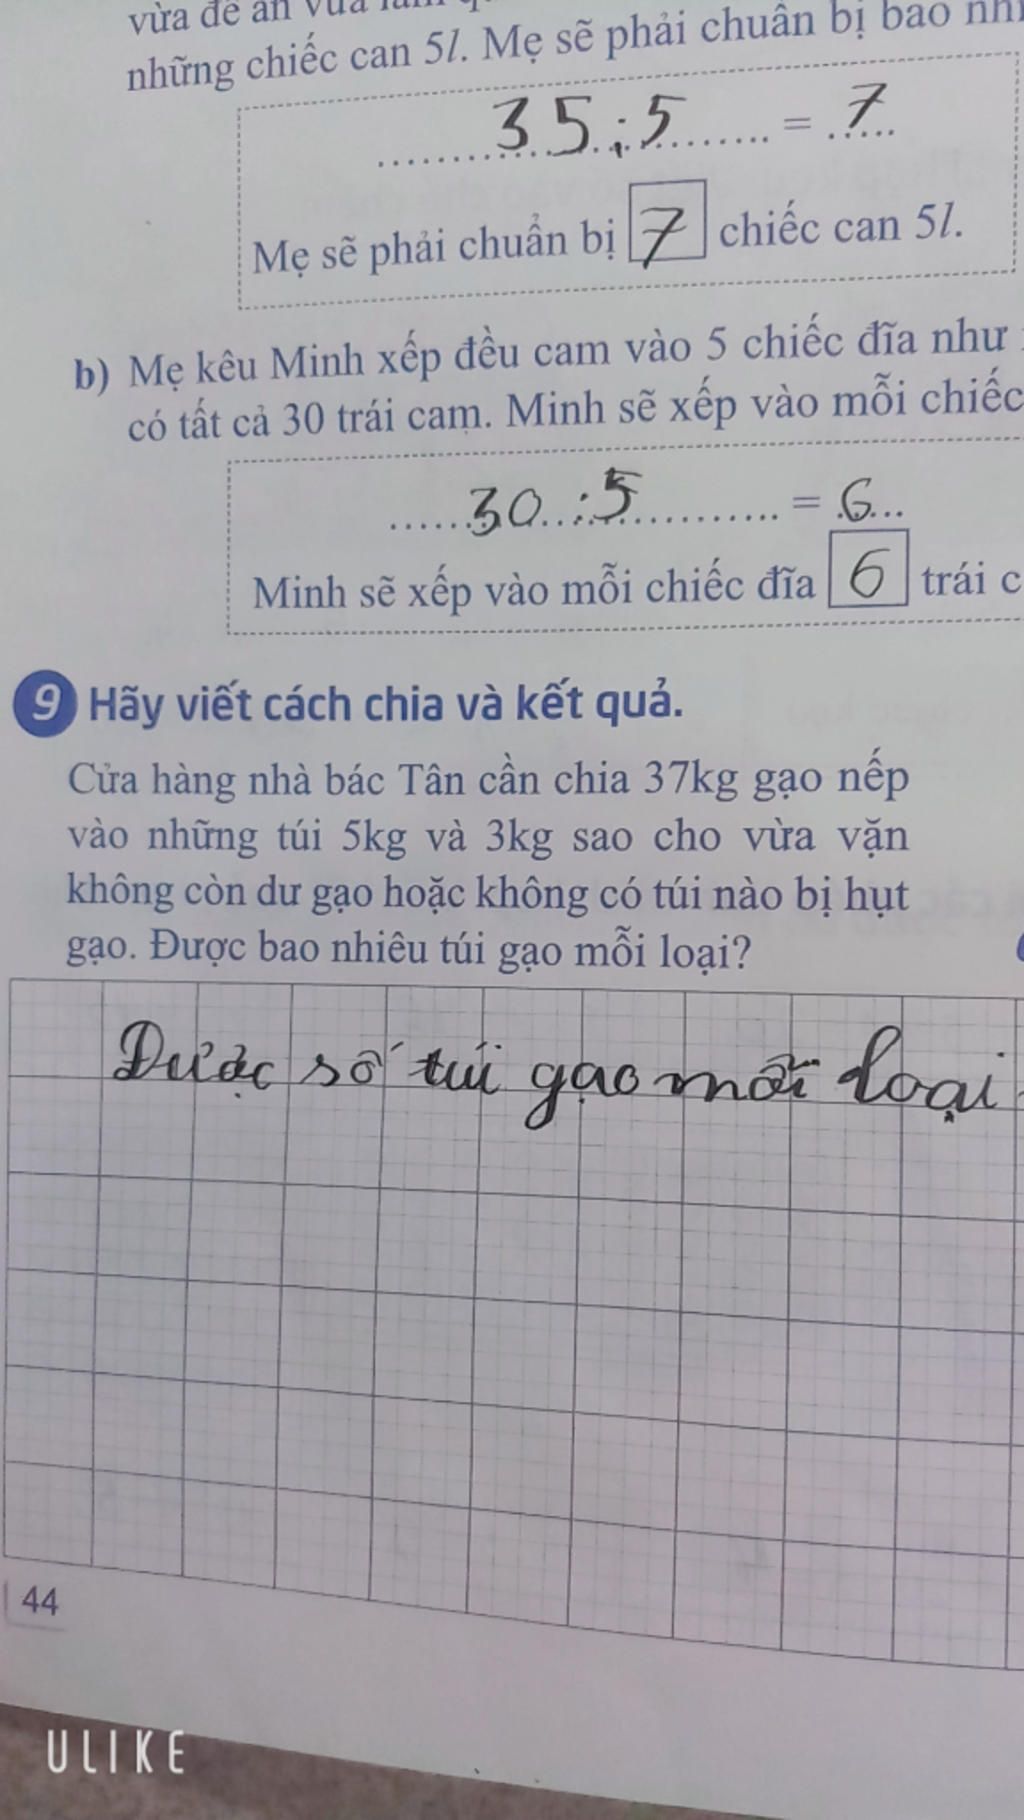 vừa để ăn vừa làm
những chiếc can 5l. Mẹ sẽ phải chuẩn bị bao
35:5 = 7
Mẹ sẽ phải chuẩn bị 7 chiếc can 5l.
b) Mẹ kêu Minh xếp đều cam vào 5 chiếc đĩa như
có tất cả 30 trái cam. Minh sẽ xếp vào mỗi chiếc
30:5 = 6
Minh sẽ xếp vào mỗi chiếc đĩa 6 trái
9 Hãy viết cách chia và kết quả.
Cửa hàng nhà bác Tân cần chia 37kg gạo nếp
vào những túi 5kg và 3kg sao cho vừa vặn
không còn dư gạo hoặc không có túi nào bị hụt
gạo. Được bao nhiêu túi gạo mỗi loại?
Được số túi gạo mỗi loại
44
ULIKE